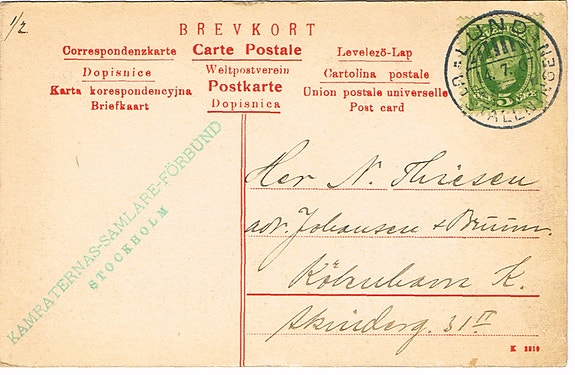 1/2
BREVKORT
Correspondenzkarte Carte Postale Levelező-Lap
Dopisnice Weltpostverein Cartolina postale
Karta korespondencyjna Postkarte Union postale universelle
Briefkaart Dopisnica Post card
LUND
5
KAMRATERNAS-SAMLARE-FÖRBUND
STOCKHOLM
Her N. Thiesen
adr. Johansen + Bruun.
Köbenhavn K.
Skinderg. 31 II
K 2219